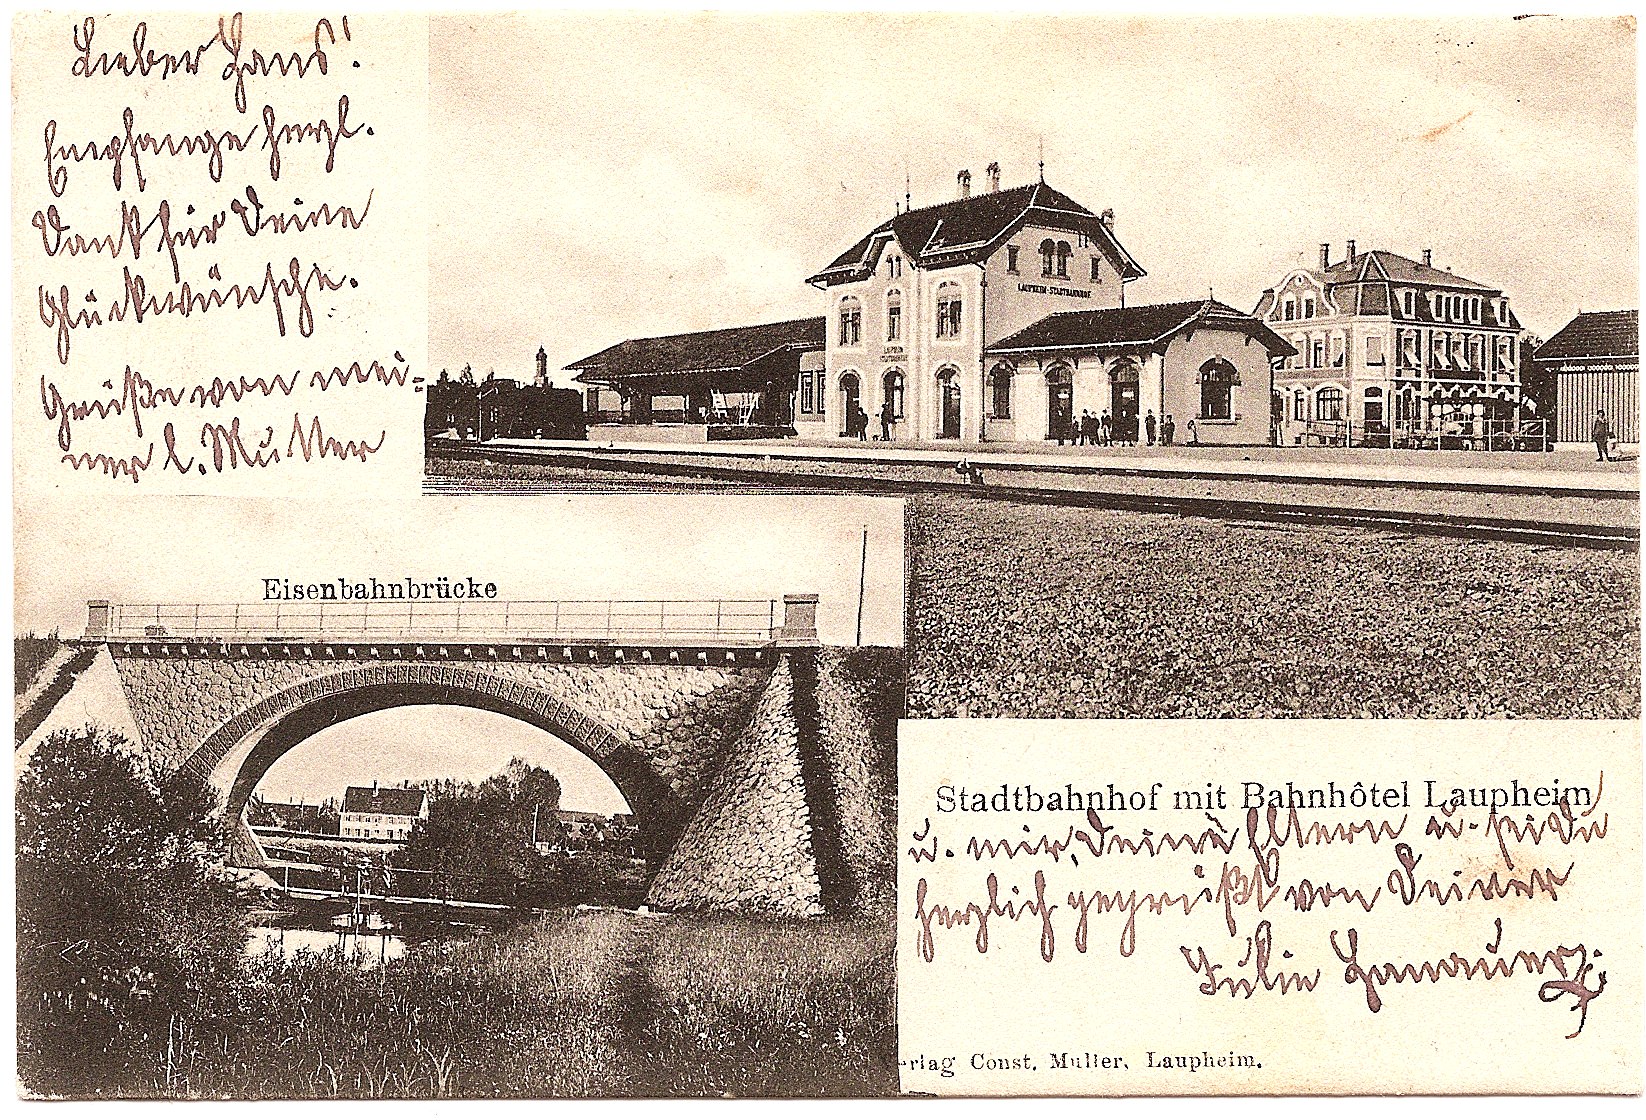 Lieber Hans!
Empfange herzl.
Dank für Deine
Glückwünsche.
Grüße von mei-
ner l. Mutter
LAUPHEIM-STADTBAHNHOF
LAUPHEIM
STADTBAHNHOF
Eisenbahnbrücke
Stadtbahnhof mit Bahnhôtel Laupheim
u. mir, Deine Eltern u. sei Du
herzlich gegrüßt von Deiner
Julie Hanauer.
rlag Const. Muller, Laupheim.